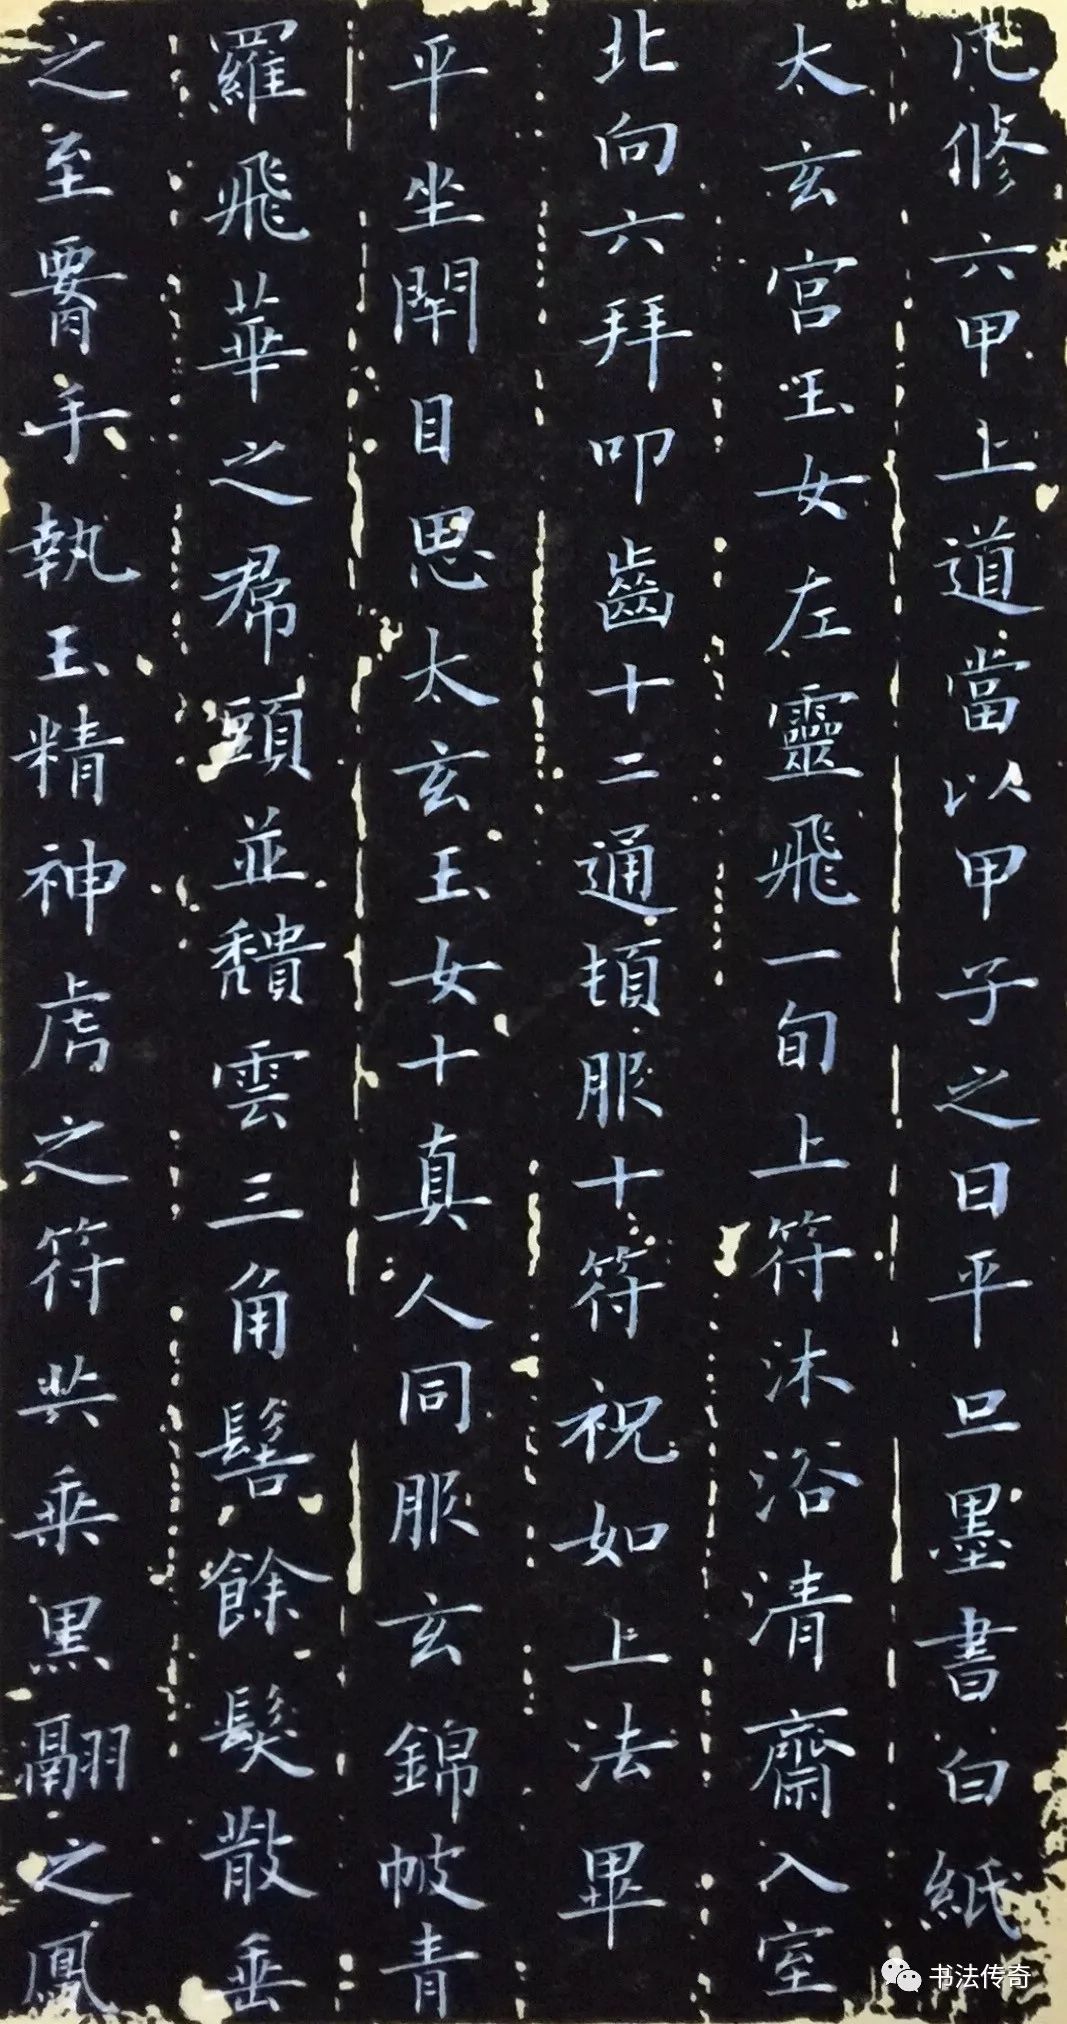 凡修六甲上道當以甲子之日平旦墨書白紙
太玄宫玉女左靈飛一旬上符沐浴清齋入室
北向六拜叩齒十二通頓服十符祝如上法畢
平坐閇目思太玄玉女十真人同服玄錦帔青
羅飛華之帬頭並穨雲三角髻餘髮散垂
之至署手執玉精神虎之符共乘黑翮之鳳
书法传奇